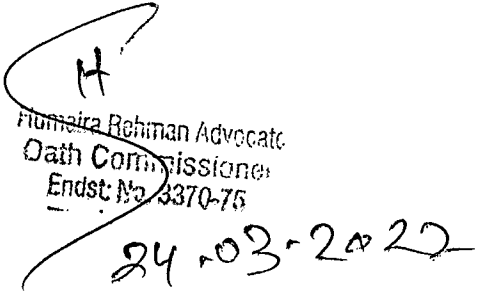 H
Humaira Rehman Advocate
Oath Commissioner
Endst: No. 3370-75
24.03.2022